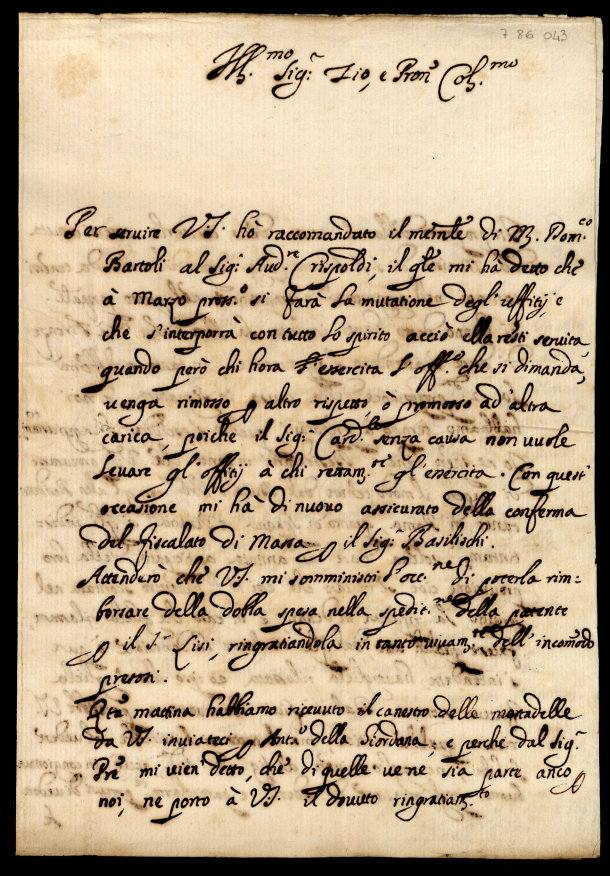 7 86 043
Ill.mo Sig.r Zio, e Pron Col.mo
Per servire V.S. hò raccomandato il memle di M. Dom.co
Bartoli al Sig.r Aud.re Crispoldi, il qle mi hà detto che
à Marzo pross.o si farà la mutatione degl'uffitij, e
che s'interporrà con tutto lo spirito acciò ella resti servita,
quando però chi hora essercita l'off.o che si dimanda,
venga rimosso p altro rispetto, ò promosso ad'altra
carica, poiche il Sig.r Card.le senza causa non vuole
levare gl'offitij à chi rettam.te gl'essercita. Con quest'
occasione mi hà di nuovo assicurato della conferma
del fiscalato di Massa p il Sig.r Basilischi.
Attenderò che V.S. mi somministri l'occ.ne di poterla rim=
borsare della dobla spesa nella spedit.ne della patente
p il S.r Lisi, ringratiandola in tanto vivam.te dell'incom̃odo
presosi.
Qta mattina habbiamo ricevuto il canestro delle mortadelle
da V.S. inviateci p Ant.o della Giordana; e perche dal Sig.r
Pre mi vien detto, che di quelle ve ne sia parte anco p
noi, ne porto à V.S. il dovuto ringratiam.to